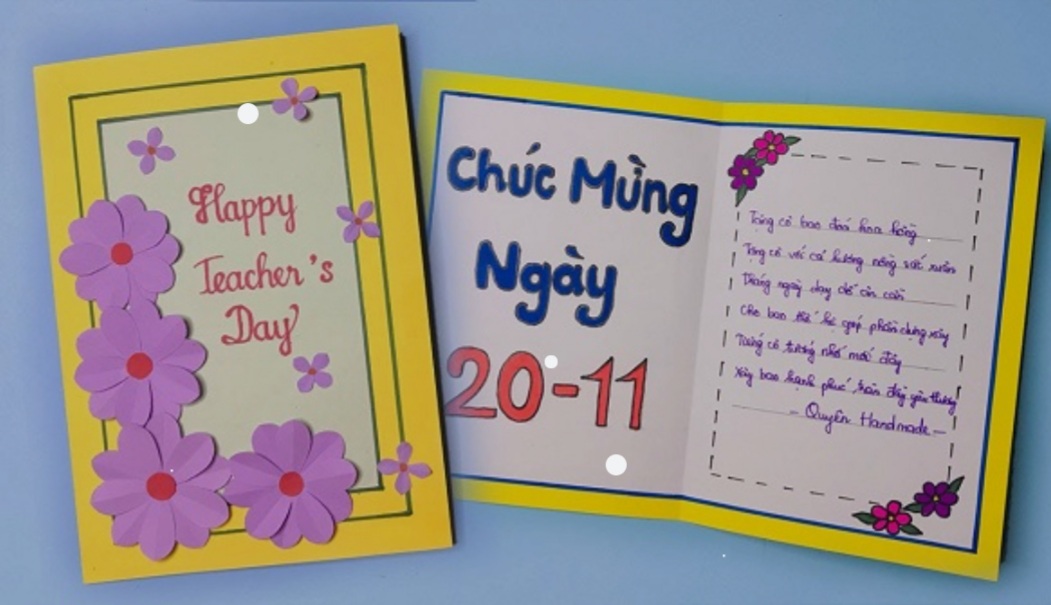 Happy
Teacher's
Day
Chúc Mừng
Ngày
20-11
Tặng cô bao đoá hoa hồng
Tặng cô với cả lòng nồng sắt xuân
Tháng ngày dạy dỗ ân cần
Cho bao thế hệ góp phần dựng xây
Tặng cô tương nhỏ mới đây
Xây bao hạnh phúc tràn đầy yêu thương
- Quyên Handmade -